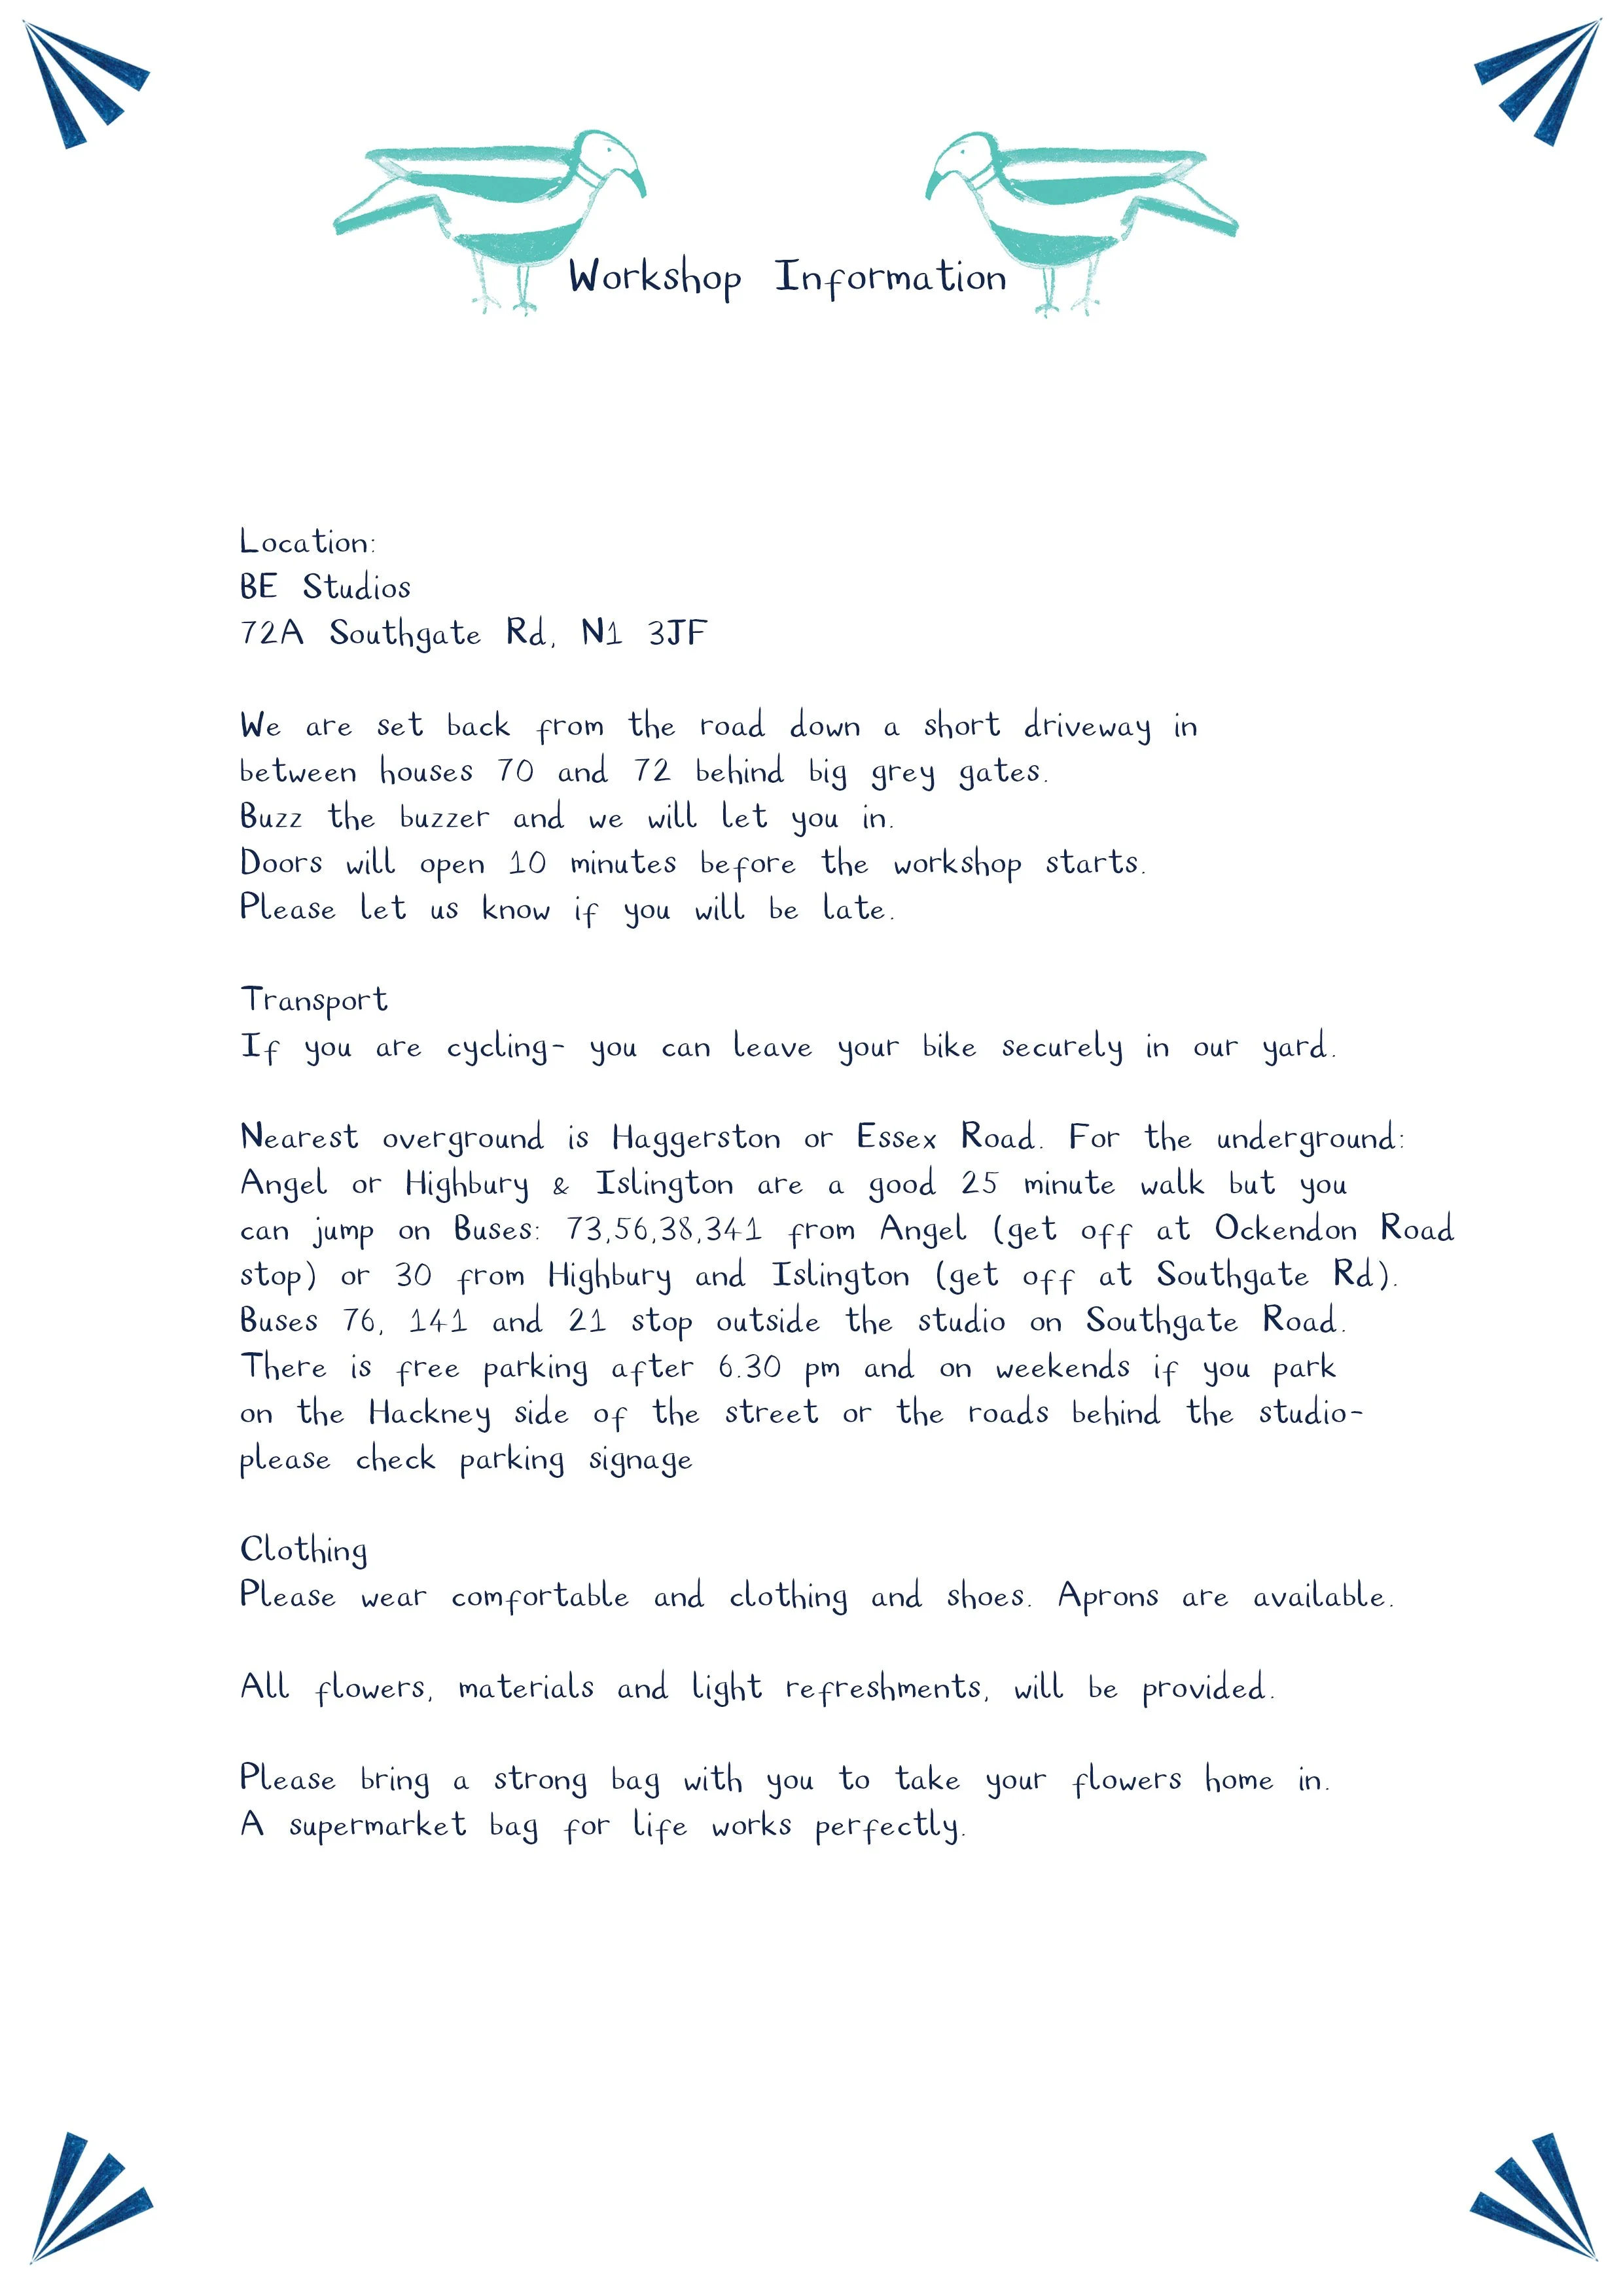 Workshop Information
Location:
BE Studios
72A Southgate Rd, N1 3JF
We are set back from the road down a short driveway in
between houses 70 and 72 behind big grey gates.
Buzz the buzzer and we will let you in.
Doors will open 10 minutes before the workshop starts.
Please let us know if you will be late.
Transport
If you are cycling- you can leave your bike securely in our yard.
Nearest overground is Haggerston or Essex Road. For the underground:
Angel or Highbury & Islington are a good 25 minute walk but you
can jump on Buses: 73,56,38,341 from Angel (get off at Ockendon Road
stop) or 30 from Highbury and Islington (get off at Southgate Rd).
Buses 76, 141 and 21 stop outside the studio on Southgate Road.
There is free parking after 6.30 pm and on weekends if you park
on the Hackney side of the street or the roads behind the studio-
please check parking signage
Clothing
Please wear comfortable and clothing and shoes. Aprons are available.
All flowers, materials and light refreshments, will be provided.
Please bring a strong bag with you to take your flowers home in.
A supermarket bag for life works perfectly.